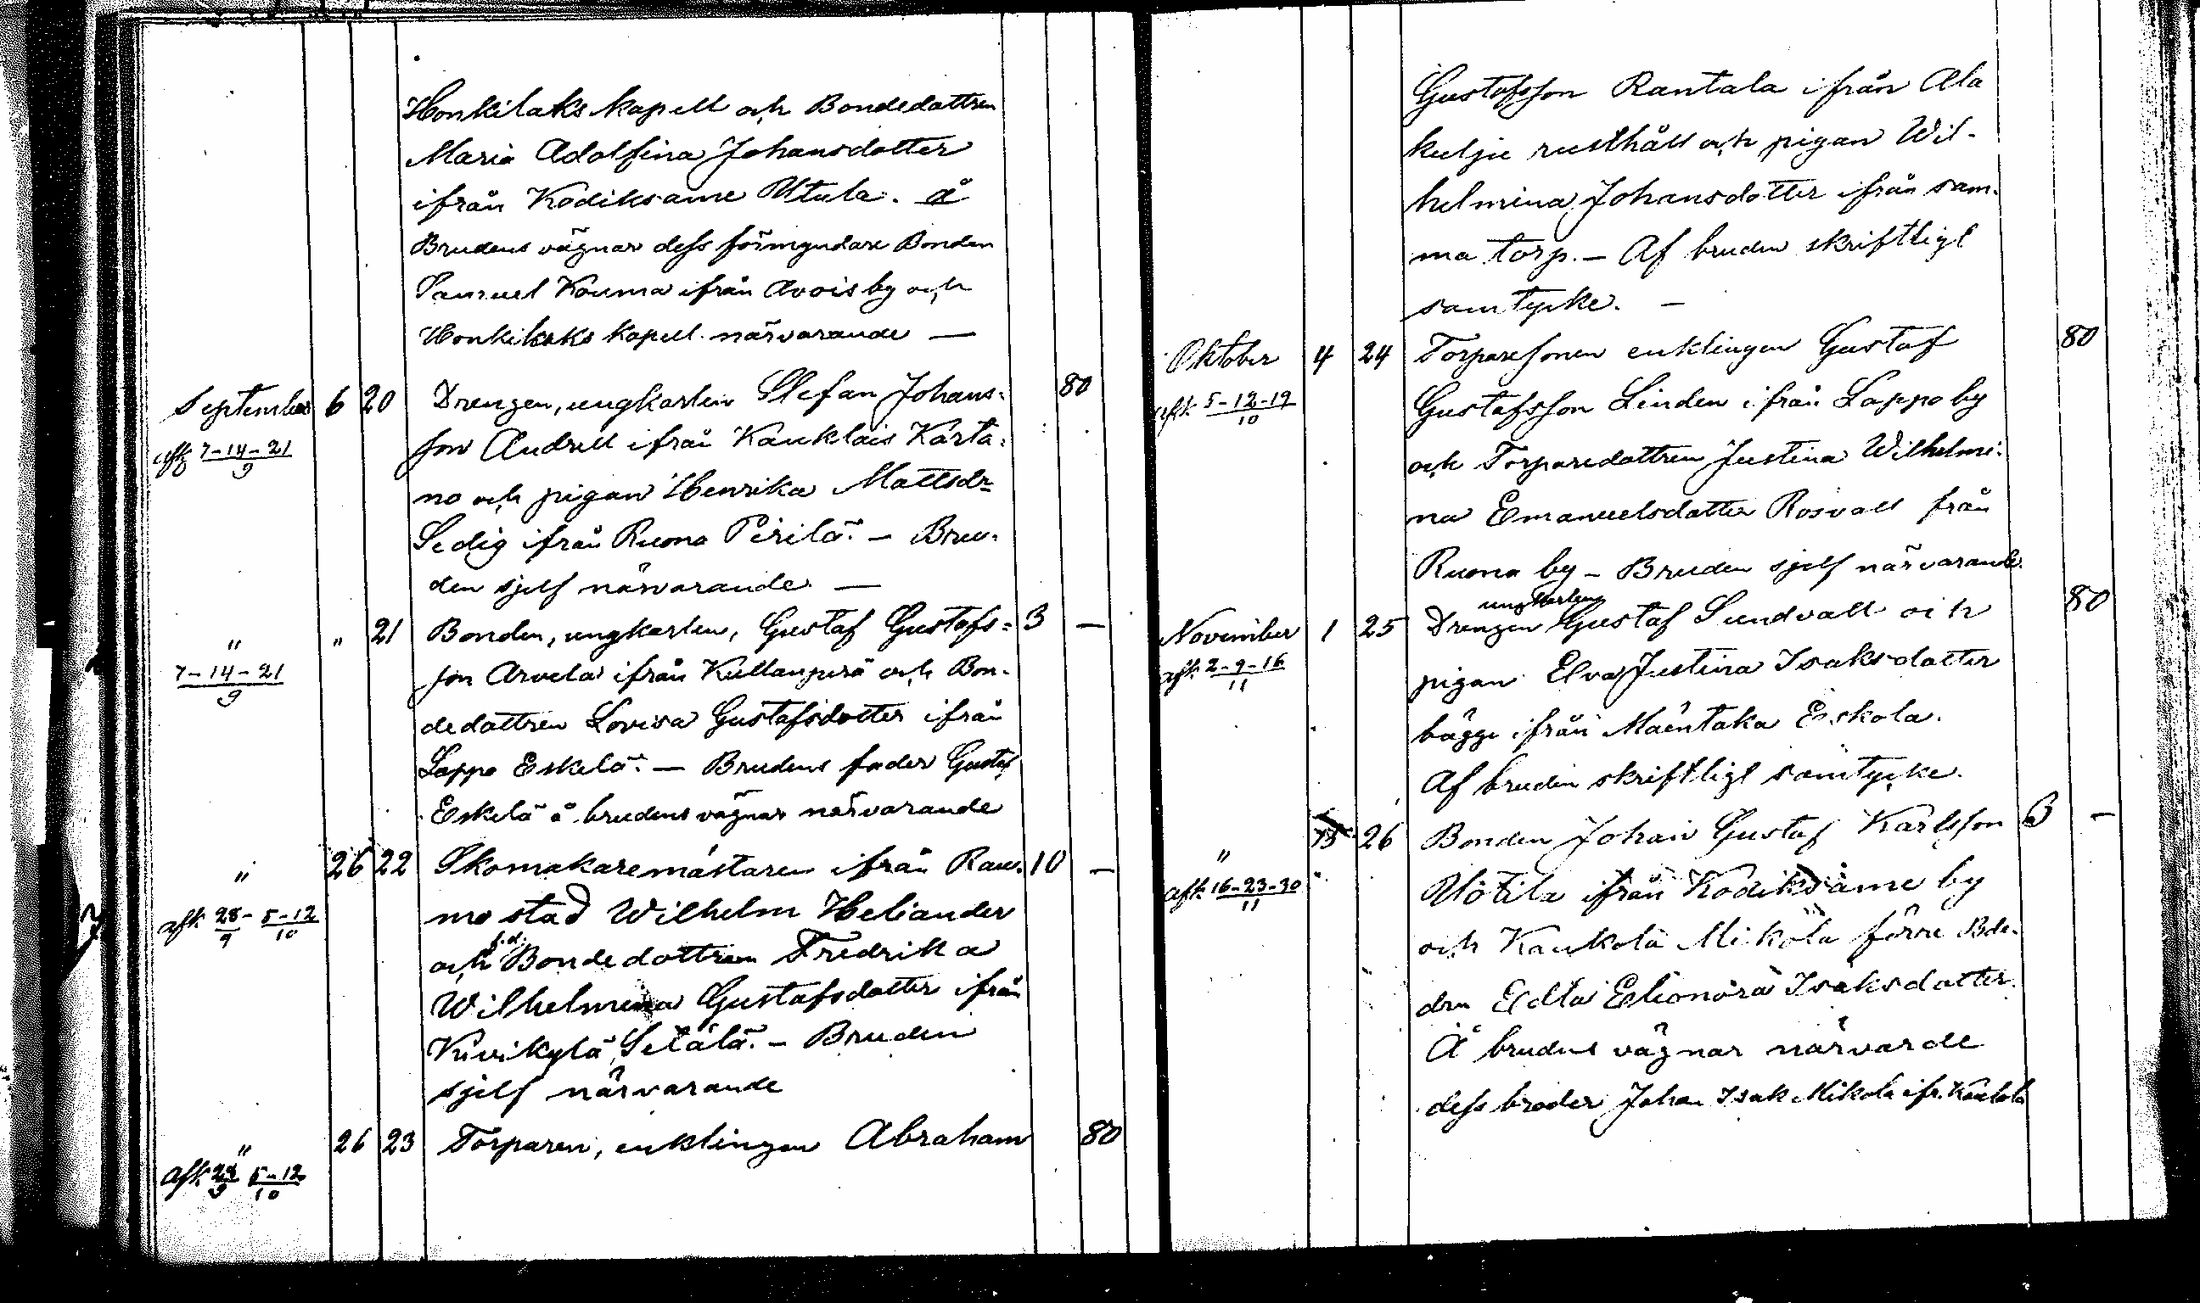 Honkilaks kapell och Bondedattren
Maria Adolfina Johansdotter
ifrån Kodiksame Utula. å
Brudens vägnar dess förmyndare Bonden
Samuel Kouma ifrån Avois by och
Honkilaks kapell. närvarande —
September 6 20 Drengen, ungkarlen Stefan Johans- 80
afk. 7-14-21/9
son Andrell ifrån Kauklais Karta-
no och pigan Henrika Mattsdr
Sedig ifrån Ruona Pirilä. — Bru-
den sjelf närvarande —
" " 21 Bonden, ungkarlen, Gustaf Gustafs= 3 —
7-14-21/9
son Arvela ifrån Kullanperä och Bon-
dedattren Lovisa Gustafsdotter ifrån
Lappo Eskelä. — Brudens fader Gustaf
Eskelä å brudens vägnar närvarande
" 26 22 Skomakaremästaren ifrån Rau- 10 —
afk. 28/9 - 5-12/10
mo stad Wilhelm Heliander
och f.d. Bondedottren Fredrika
Wilhelmina Gustafsdotter ifrån
Kivikylä Setälä. — Bruden
sjelf närvarande
" 26 23 Torparen, enklingen Abraham 80
afk. 28/9 5-12/10
Gustafsson Rantala ifrån Ala
kulju rusthåll och pigan Wil-
helmina Johansdotter ifrån sam-
ma torp. — Af bruden skriftligt
samtycke. —
Oktober 4 24 Torparesonen enklingen Gustaf 80
afk. 5-12-19/10
Gustafsson Linden ifrån Lappo by
och Torparedottren Justina Wilhelmi-
na Emanuelsdotter Rosvall från
Ruona by — Bruden sjelf närvarande.
November 1 25 Drengen ungkarlen Gustaf Sundvall och 80
afk. 2-9-16/11
pigan Elva Justina Isaksdotter
bägge ifrån Mäentaka Eskola.
Af bruden skriftligt samtycke.
" 15 26 Bonden Johan Gustaf Karlsson 3 —
afk. 16-23-30/11
Ulötila ifrån Kodiksame by
och Kaukola Mikola förre Bde-
drn Edla Elionora Isaksdotter.
Å brudens vägnar närvarde
dess broder Johan Isak Mikola ifr. Kaukola